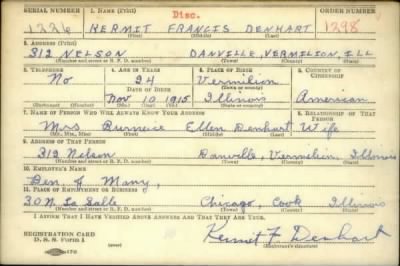 SERIAL NUMBER 1. NAME (Print) ORDER NUMBER
Disc.
1226 KERMIT FRANCIS DENHART 1298
(First) (Middle) (Last)
2. ADDRESS (Print)
312 NELSON DANVILLE, VERMILION, ILL
(Number and street or R. F. D. number) (Town) (County) (State)
3. TELEPHONE 4. AGE IN YEARS 5. PLACE OF BIRTH 6. COUNTRY OF
CITIZENSHIP
No 24 Vermilion
DATE OF BIRTH (Town or county)
Nov 10 1915 Illinois American
(Exchange) (Number) (Mo.) (Day) (Yr.) (State or country)
7. NAME OF PERSON WHO WILL ALWAYS KNOW YOUR ADDRESS 8. RELATIONSHIP OF THAT
PERSON
Mrs Burneice Ellen Denhart Wife
(Mr., Mrs., Miss) (First) (Middle) (Last)
9. ADDRESS OF THAT PERSON
312 Nelson Danville, Vermilion, Illinois
(Number and street or R. F. D. number) (Town) (County) (State)
10. EMPLOYER'S NAME
Many,
11. PLACE OF EMPLOYMENT OR BUSINESS
30 N. La Salle Chicago, Cook Illinois
(Number and street or R. F. D. number) (Town) (County) (State)
I AFFIRM THAT I HAVE VERIFIED ABOVE ANSWERS AND THAT THEY ARE TRUE.
REGISTRATION CARD
D. S. S. Form 1 Kermit F Denhart
(Registrant's signature)